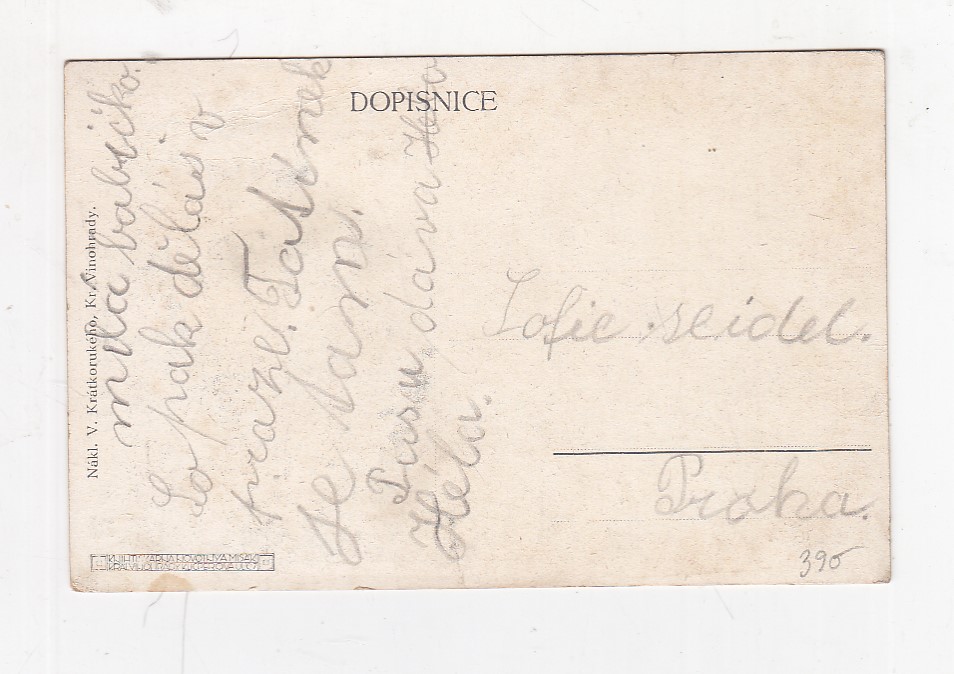 DOPISNICE
milá babičko.
Co pak děláš v
praze. Tatínek
Je tam.
Pusu dává
Héla.
Sofie Seidel.
Praha.
390
Nákl. V. Krátkorukého, Kr. Vinohrady.